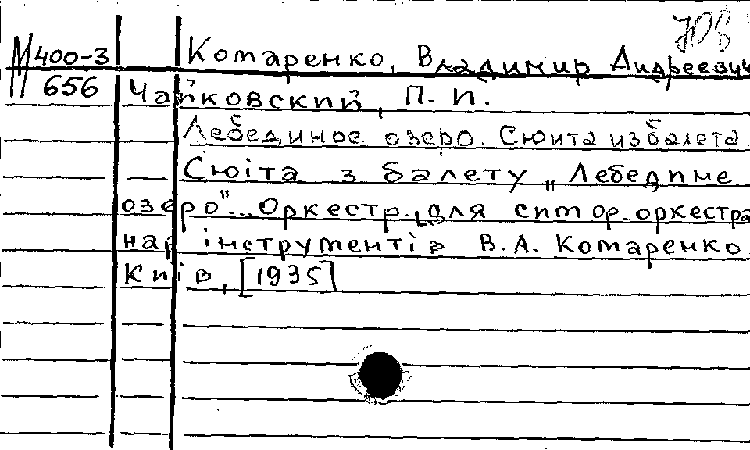 М 400-3
656
Комаренко, Владимир Андреевич
Чайковский, П. И.
Лебединое озеро. Сюита из балета
Сюіта з балету „Лебедине
озеро"... Оркестр. для симф. оркестра
нар інструментів В.А. Комаренко.
Київ, [1935]